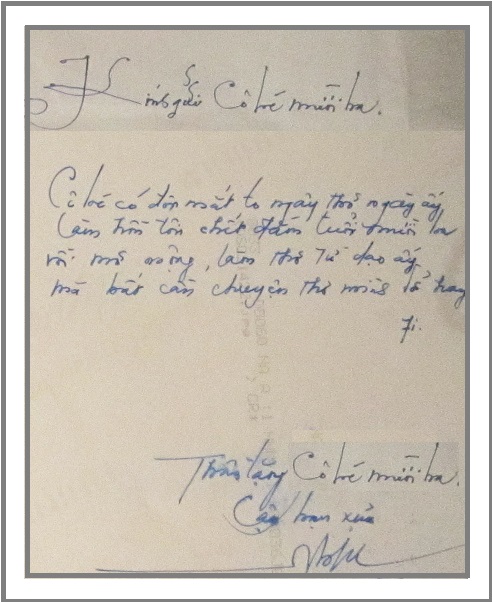 Kính gửi Cô bé mười ba.
Cô bé có đôi mắt to ngây thơ ngày ấy
Làm hồn tôn chết đắm tuổi mười ba
rồi mơ mộng, làm thơ từ dạo ấy
mà bất cần chuyện thơ mình dở hay
Thân tặng Cô bé mười ba.
Cậu bạn xưa